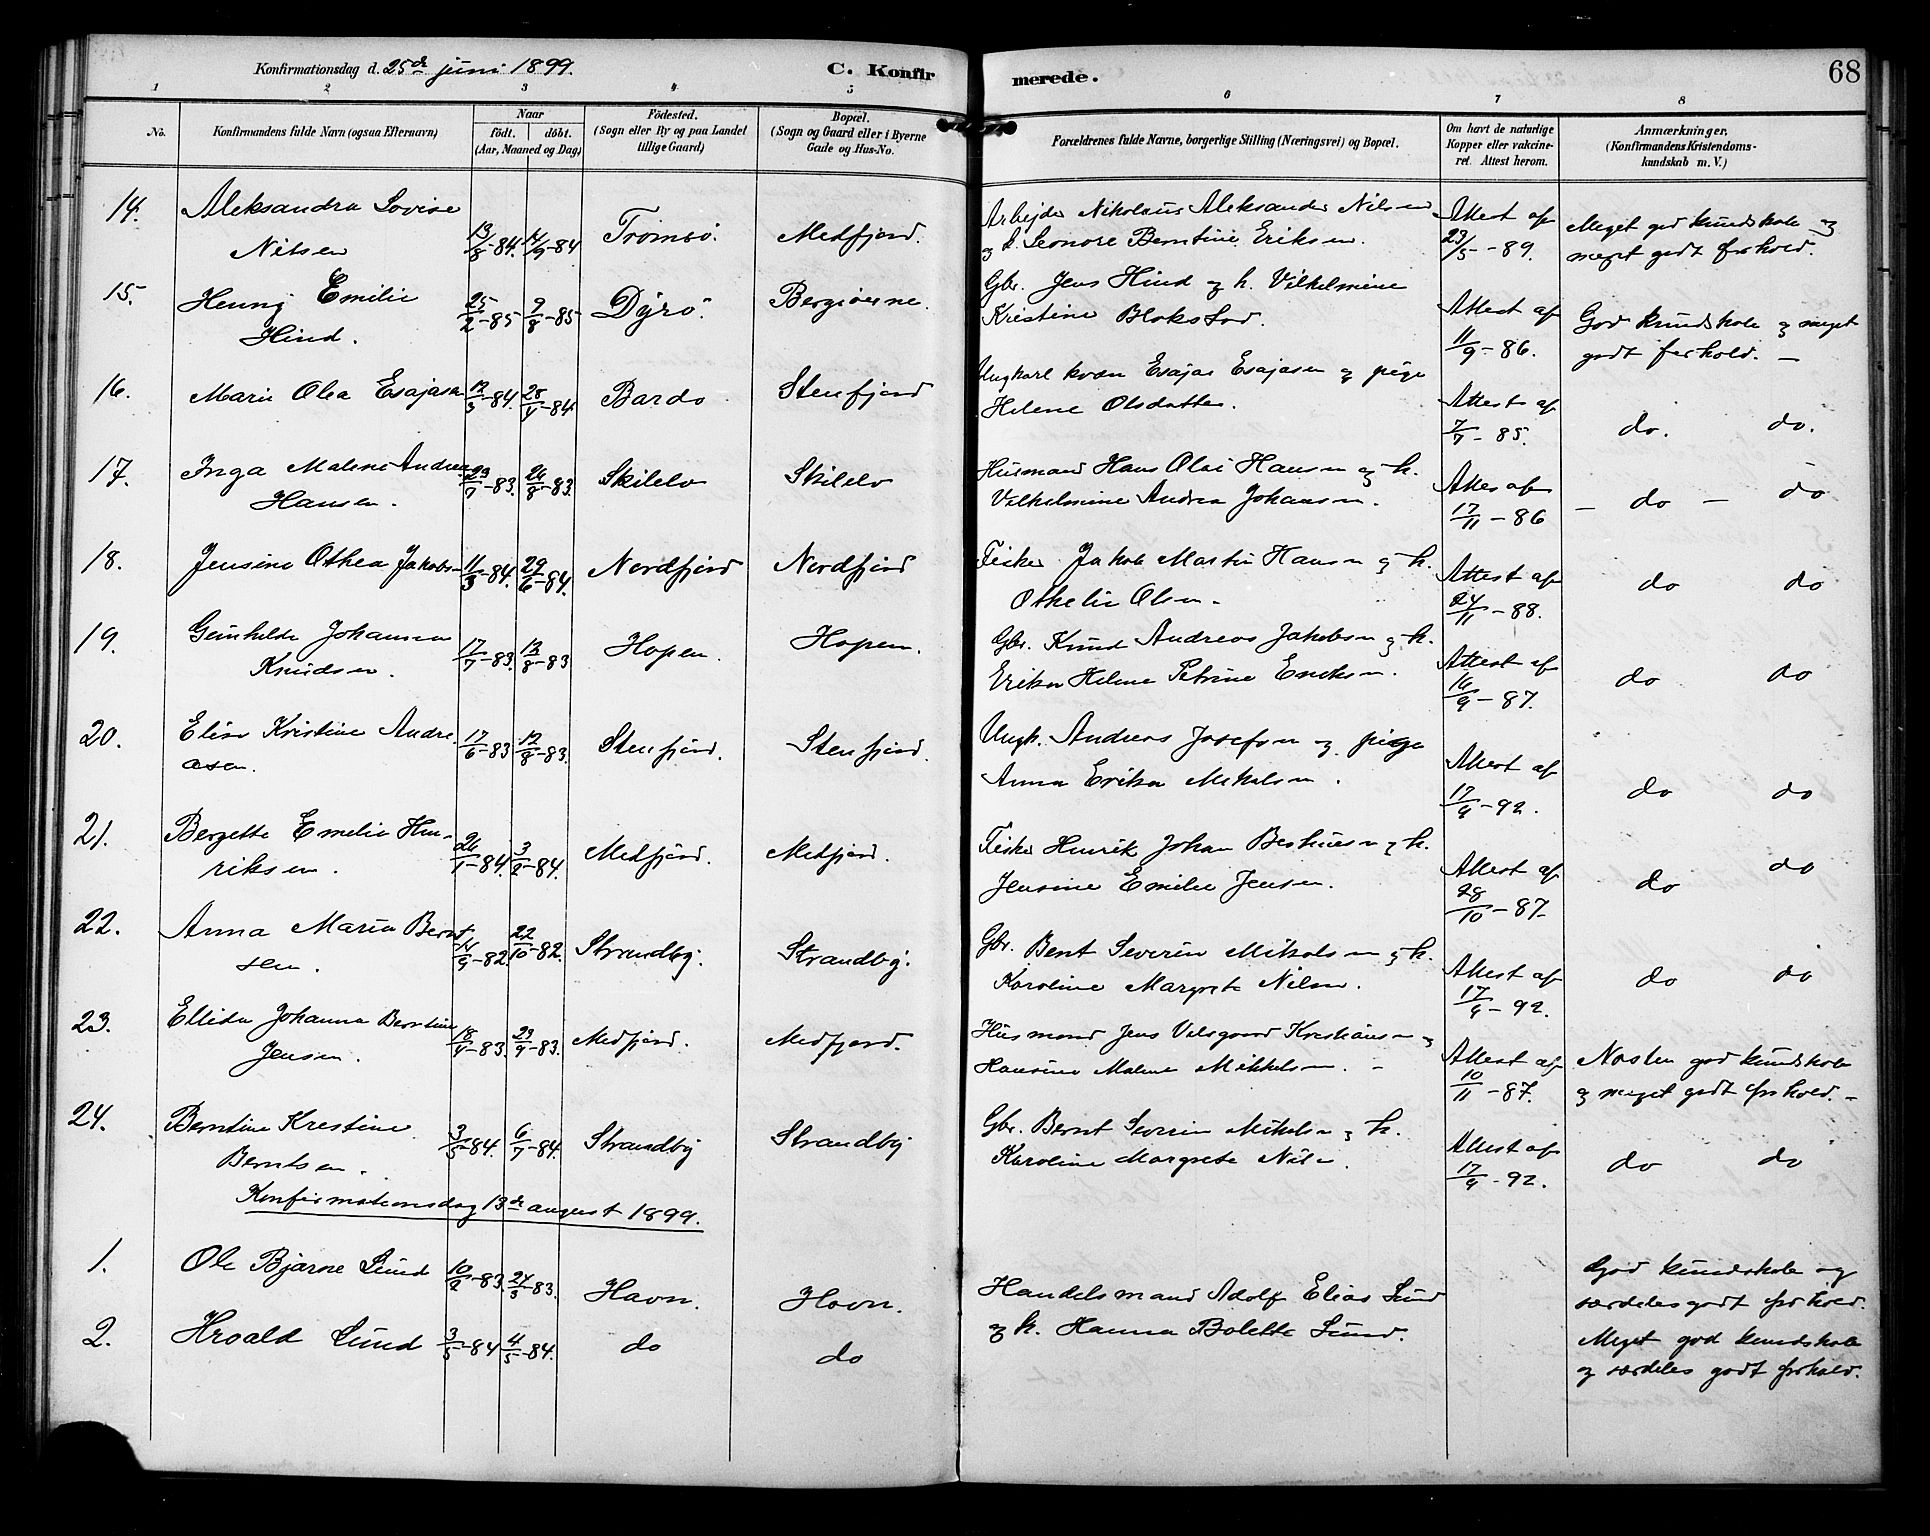 Konfirmationsdag d. 25de juni 1899.
C. Konfirmerede.
68
1 2 3 4 5 6 7 8
No.
Konfirmandens fulde Navn (ogsaa Efternavn)
Naar
födt. döbt.
(Aar, Maaned og Dag)
Födested.
(Sogn eller By og paa Landet
tillige Gaard)
Bopæl.
(Sogn og Gaard eller i Byerne
Gade og Hus-No.
Forældrenes fulde Navne, borgerlige Stilling (Næringsvei) og Bopæl.
Om havt de naturlige
Kopper eller vakcine-
ret. Attest herom.
Anmærkninger,
(Konfirmandens Kristendoms-
kundskab m. V.)
14. Aleksandra Lovise
Nilsen
13/8-84. 14/9-84 Tromsö. Medfjord.
Arbejder Nikolaus Aleksander Nilsen
og h. Leonore Berntine Eriksen.
Attest af
23/5-89.
Meget god kundskab og
meget godt forhold.
15. Henny Emilie
Hind.
25/2-85 9/8-85 Dyrö.
Gbr. Jens Hind og h. Vilhelmine
Kristine Blokstad.
Attest af
11/9-86.
God kundskab og meget
godt forhold. —
16. Marie Olea Esajasen
12/3-84. Bardo Stenfjord
Ungkarl kvæn Esajas Esajasen og pige
Helene Olsdatter.
Attest af
7/7-85.
do. do.
17. Inga Malene Andrea
Hansen.
23/7-83. 26/8-83. Skilelv Skilelv
Husmand Hans Olai Hansen og h.
Vilhelmine Andrea Johansen.
Attes af
17/11-86
— do — do
18. Jensine Othea Jakobsen
11/3-84. 29/6-84. Nordfjord Nordfjord
Fisker Jakob Martin Hansen og h.
Othelie Olsen.
Attest af
24/11-88.
do do
19. Gunhilde Johansen
Knudsen.
17/7-83. 12/8-83 Hopen. Hopen.
Gbr. Knud Andreas Jakobsen og h.
Erika Helene Petrine Eriksen.
Attest af
16/9-87.
do do
20. Elise Kristine Andre
asen.
17/6-83 12/8-83. Stenfjord. Stenfjord.
Ungk. Andreas Josefsen og pige
Anna Erika Mikalsen.
Attest af
17/9-92.
do do
21. Bergette Emelie Hen-
riksen.
26/1-84. 3/2-84. Medfjord. Medfjord.
Fisker Henrik Johan Berthusen og h.
Jensine Emilie Jensen.
Attest af
28/10-87-
do do
22. Anna Maria Bernt
sen.
14/9-82. 22/10-82. Strandby. Strandby.
Gbr. Bent Severin Mikalsen og h.
Karoline Margrete Nilsen.
Attest af
17/9-92.
do do
23. Ellida Johanna Berntine
Jensen.
18/4-83. 23/9-83. Medfjord. Medfjord.
Husmand Jens Kristiansen og
Hansine Malene Mikkelsen. -
Attest af
10/11-87.
Næsten god kundskab
og meget godt forhold. -
24. Berntine Krestine
Berntsen.
3/5-84. 6/7-84. Strandby Strandby
Gbr. Bernt Severin Mikalsen og h.
Karoline Margrete Nilsen.
Attest af
17/9-92.
do do
Konfirmationsdag 13de august 1899.
1. Ole Bjarne Lund
10/2-83. 27/3-83. Havn. Havn.
Handelsmand Adolf Elias Lund
og h. Hanna Bolette Lund.
God kundskab og
særdeles godt forhold.
2. Hroald Lund
3/3-84 4/5-84. do do
Meget god kundskab
og særdeles godt forhold.